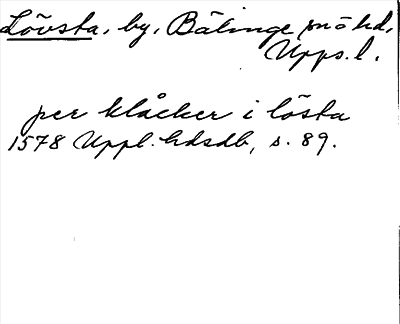 Lövsta, by, Bälinge sn o hd,
Upps.l.
per klåcker i lösta
1578 Uppl. hdsdb, s. 89.